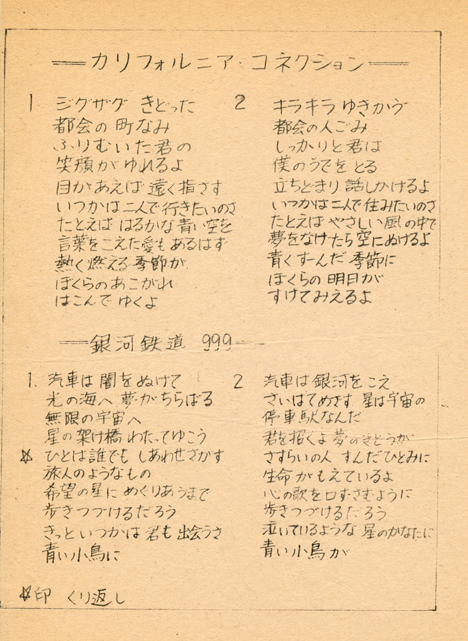 カリフォルニア・コネクション
1 ジグザグ きどった
都会の 町なみ
ふりむいた 君の
笑顔が ゆれるよ
目があえば 遠く指さす
いつかは二人で 行きたいのさ
たとえば はるかな 青い空を
言葉をこえた愛も あるはず
熱く燃える 季節が
ぼくらの あこがれ
はこんで ゆくよ
2 キラキラ ゆきかう
都会の人ごみ
しっかりと 君は
僕のうでを とる
立ちどまり 話しかけるよ
いつかは二人で 住みたいのさ
たとえば やさしい 風の中で
夢をなげたら 空にぬけるよ
青くすんだ 季節に
ぼくらの 明日が
すけてみえるよ
銀河鉄道 999
1. 汽車は 闇をぬけて
光の海へ 夢がちらばる
無限の宇宙へ
星の架け橋 わたってゆこう
☆ ひとは誰でも しあわせさがす
旅人のようなもの
希望の星に めぐりあうまで
歩きつづけるだろう
きっといつかは 君も 出会うさ
青い小鳥に
2 汽車は 銀河をこえ
さいはてめざす 星は宇宙の
停車駅なんだ
君を招くよ 夢のきとうが
さすらいの人 すんだひとみに
生命が もえているよ
心の歌を 口ずさむように
歩きつづけるだろう
泣いているような 星のかなたに
青い小鳥が
☆印 くり返し